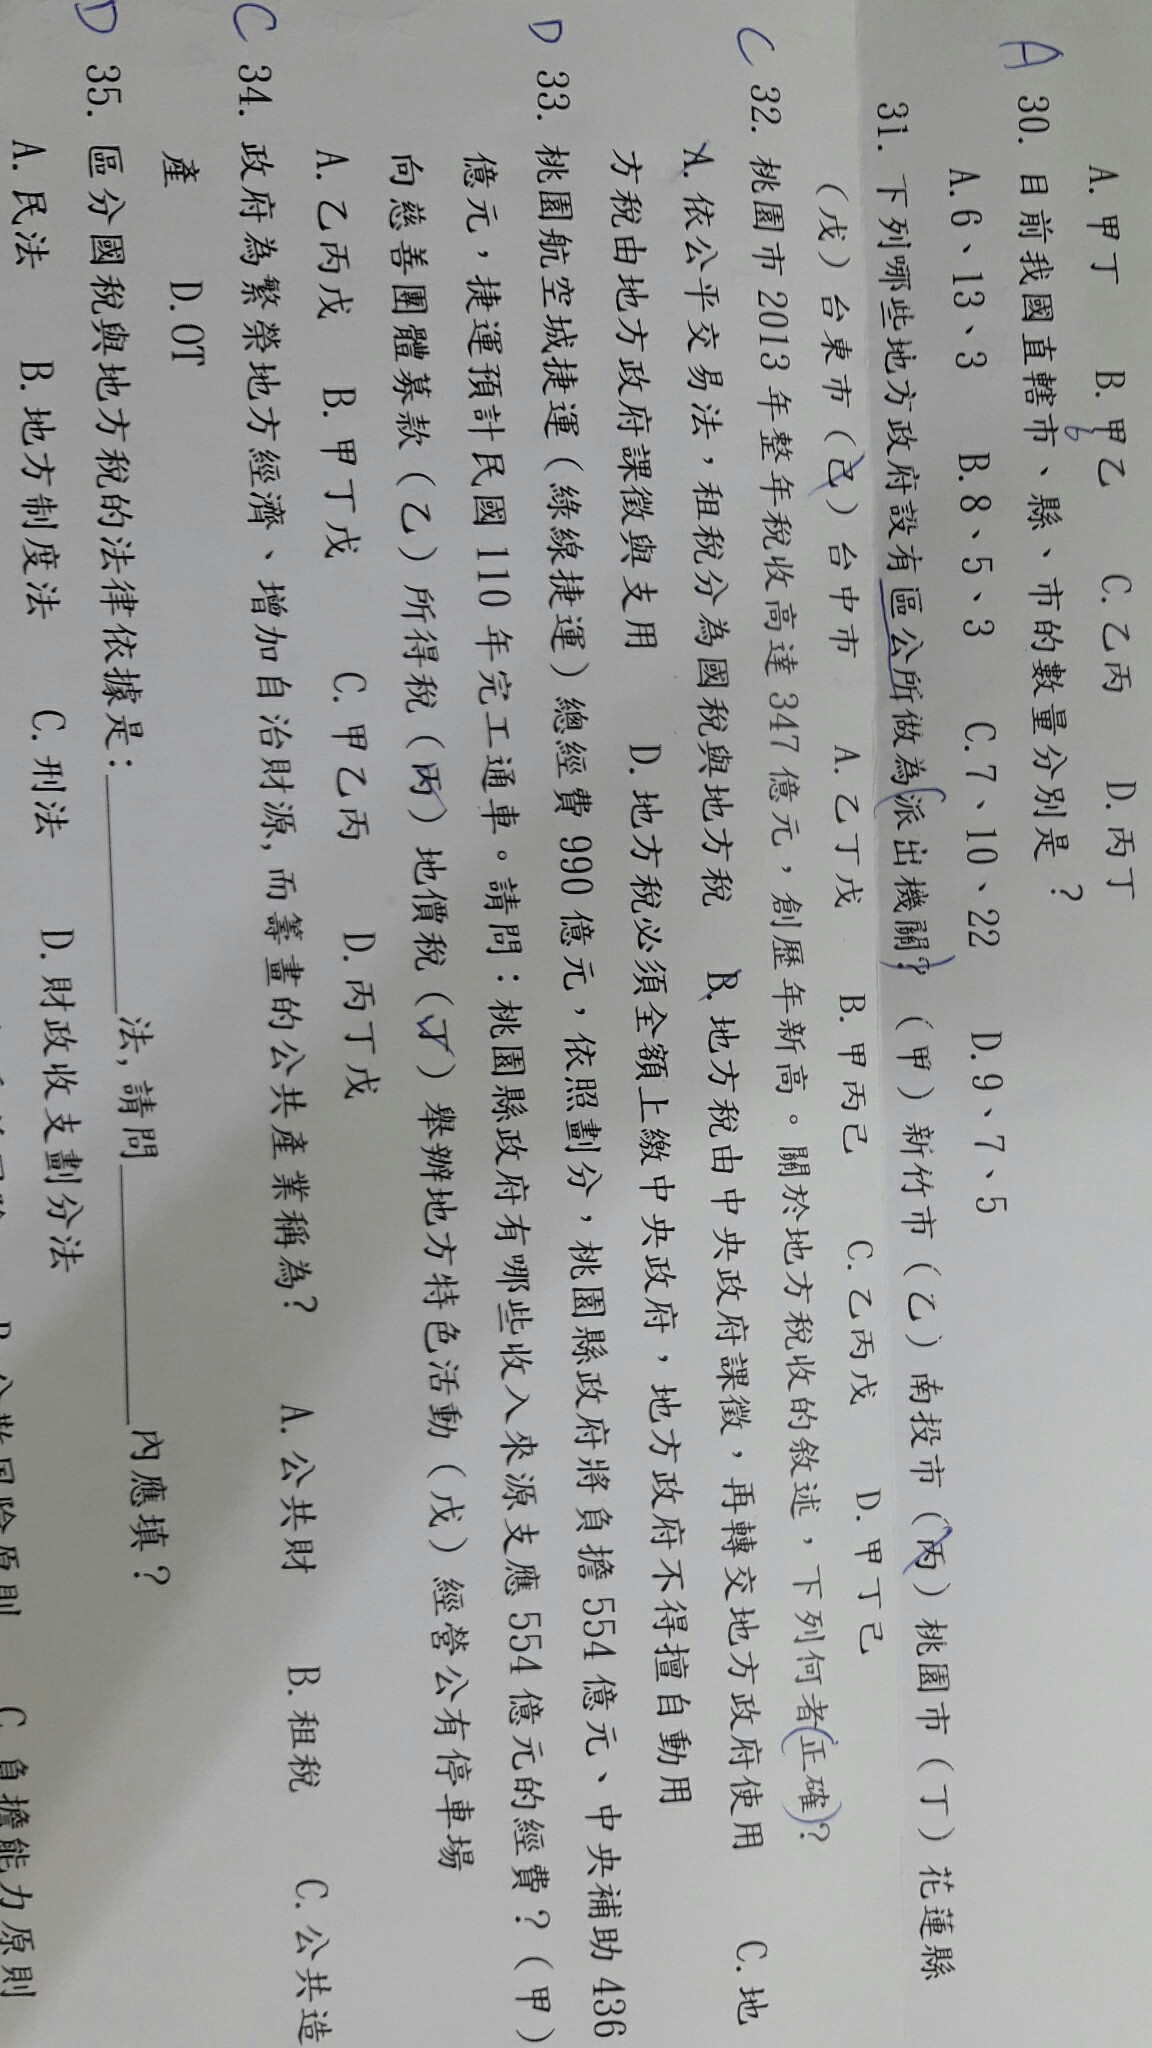 A.甲丁 B.甲乙 C.乙丙 D.丙丁
A 30.目前我國直轄市、縣、市的數量分別是?
A.6、13、3 B.8、5、3 C.7、10、22 D.9、7、5
31.下列哪些地方政府設有區公所做為派出機關?(甲)新竹市(乙)南投市(丙)桃園市(丁)花蓮縣
(戊)台東市(己)台中市 A.乙丁戊 B.甲丙己 C.乙丙戊 D.甲丁己
C 32.桃園市2013年整年稅收高達347億元,創歷年新高。關於地方稅收的敘述,下列何者正確?
A.依公平交易法,租稅分為國稅與地方稅 B.地方稅由中央政府課徵,再轉交地方政府使用 C.地
方稅由地方政府課徵與支用 D.地方稅必須全額上繳中央政府,地方政府不得擅自動用
D 33.桃園航空城捷運(綠線捷運)總經費990億元,依照劃分,桃園縣政府將負擔554億元、中央補助436
億元,捷運預計民國110年完工通車。請問:桃園縣政府有哪些收入來源支應554億元的經費?(甲)
向慈善團體募款(乙)所得稅(丙)地價稅(丁)舉辦地方特色活動(戊)經營公有停車場
A.乙丙戊 B.甲丁戊 C.甲乙丙 D.丙丁戊
C 34.政府為繁榮地方經濟、增加自治財源,而籌畫的公共產業稱為? A.公共財 B.租稅 C.公共造
產 D.OT
D 35.區分國稅與地方稅的法律依據是:__________法,請問__________內應填?
A.民法 B.地方制度法 C.刑法 D.財政收支劃分法
C 負擔能力原則